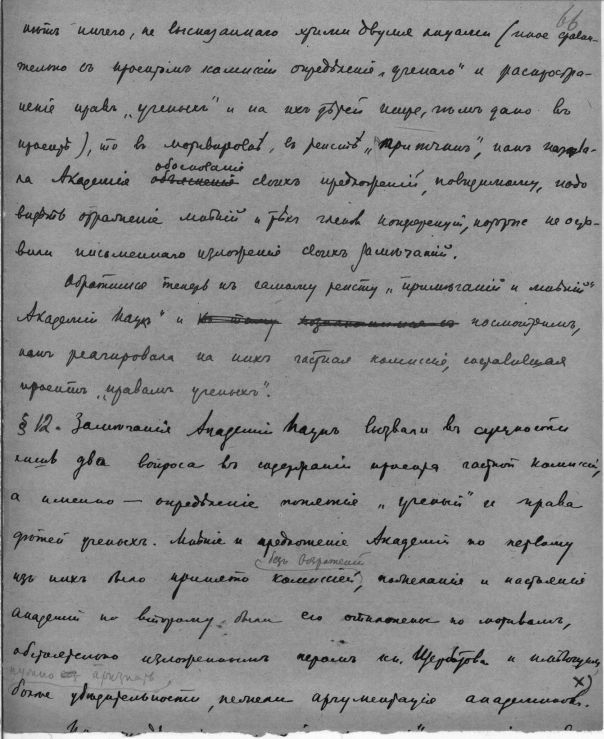 66
ничего, не высказаннаго этими двумя лицами (иное сравни-
тельно съ проектомъ комиссіи опредѣленіе „ученаго“ и распростра-
неніе правъ „ученыхъ“ и на ихъ дѣтей шире, чѣмъ дано въ
проектѣ), то въ мотивировкѣ, въ текстѣ „причинъ“, какъ назва-
обоснованіе
ла Академія объясненіе своихъ предложеній, повидимому, надо
видѣть отраженіе мнѣній и тѣхъ членовъ конференціи, которые не оста-
вили письменнаго изложенія своихъ замѣчаній.
Обратимся теперь къ самому тексту „примѣчаній и мнѣній“
Академіи Наукъ и посмотримъ,
какъ реагировала на нихъ частная комиссія, составившая
проектъ „правамъ ученыхъ“.
§ 12. Замѣчанія Академіи Наукъ вызвали въ сущности
лишь два вопроса въ содержаніи проекта частной комиссіи,
а именно — опредѣленіе понятія „ученый“ и права
дѣтей ученыхъ. Мнѣніе и предложеніе Академіи по первому
безъ возраженій
изъ нихъ было принято комиссіей, пожеланія и настоянія
академіи по второму были ею отклонены по мотивамъ,
обстоятельно изложеннымъ перомъ кн. Щербатова и
нужно признать,
болѣе убѣдительности, нежели аргументація академиковъ. x)